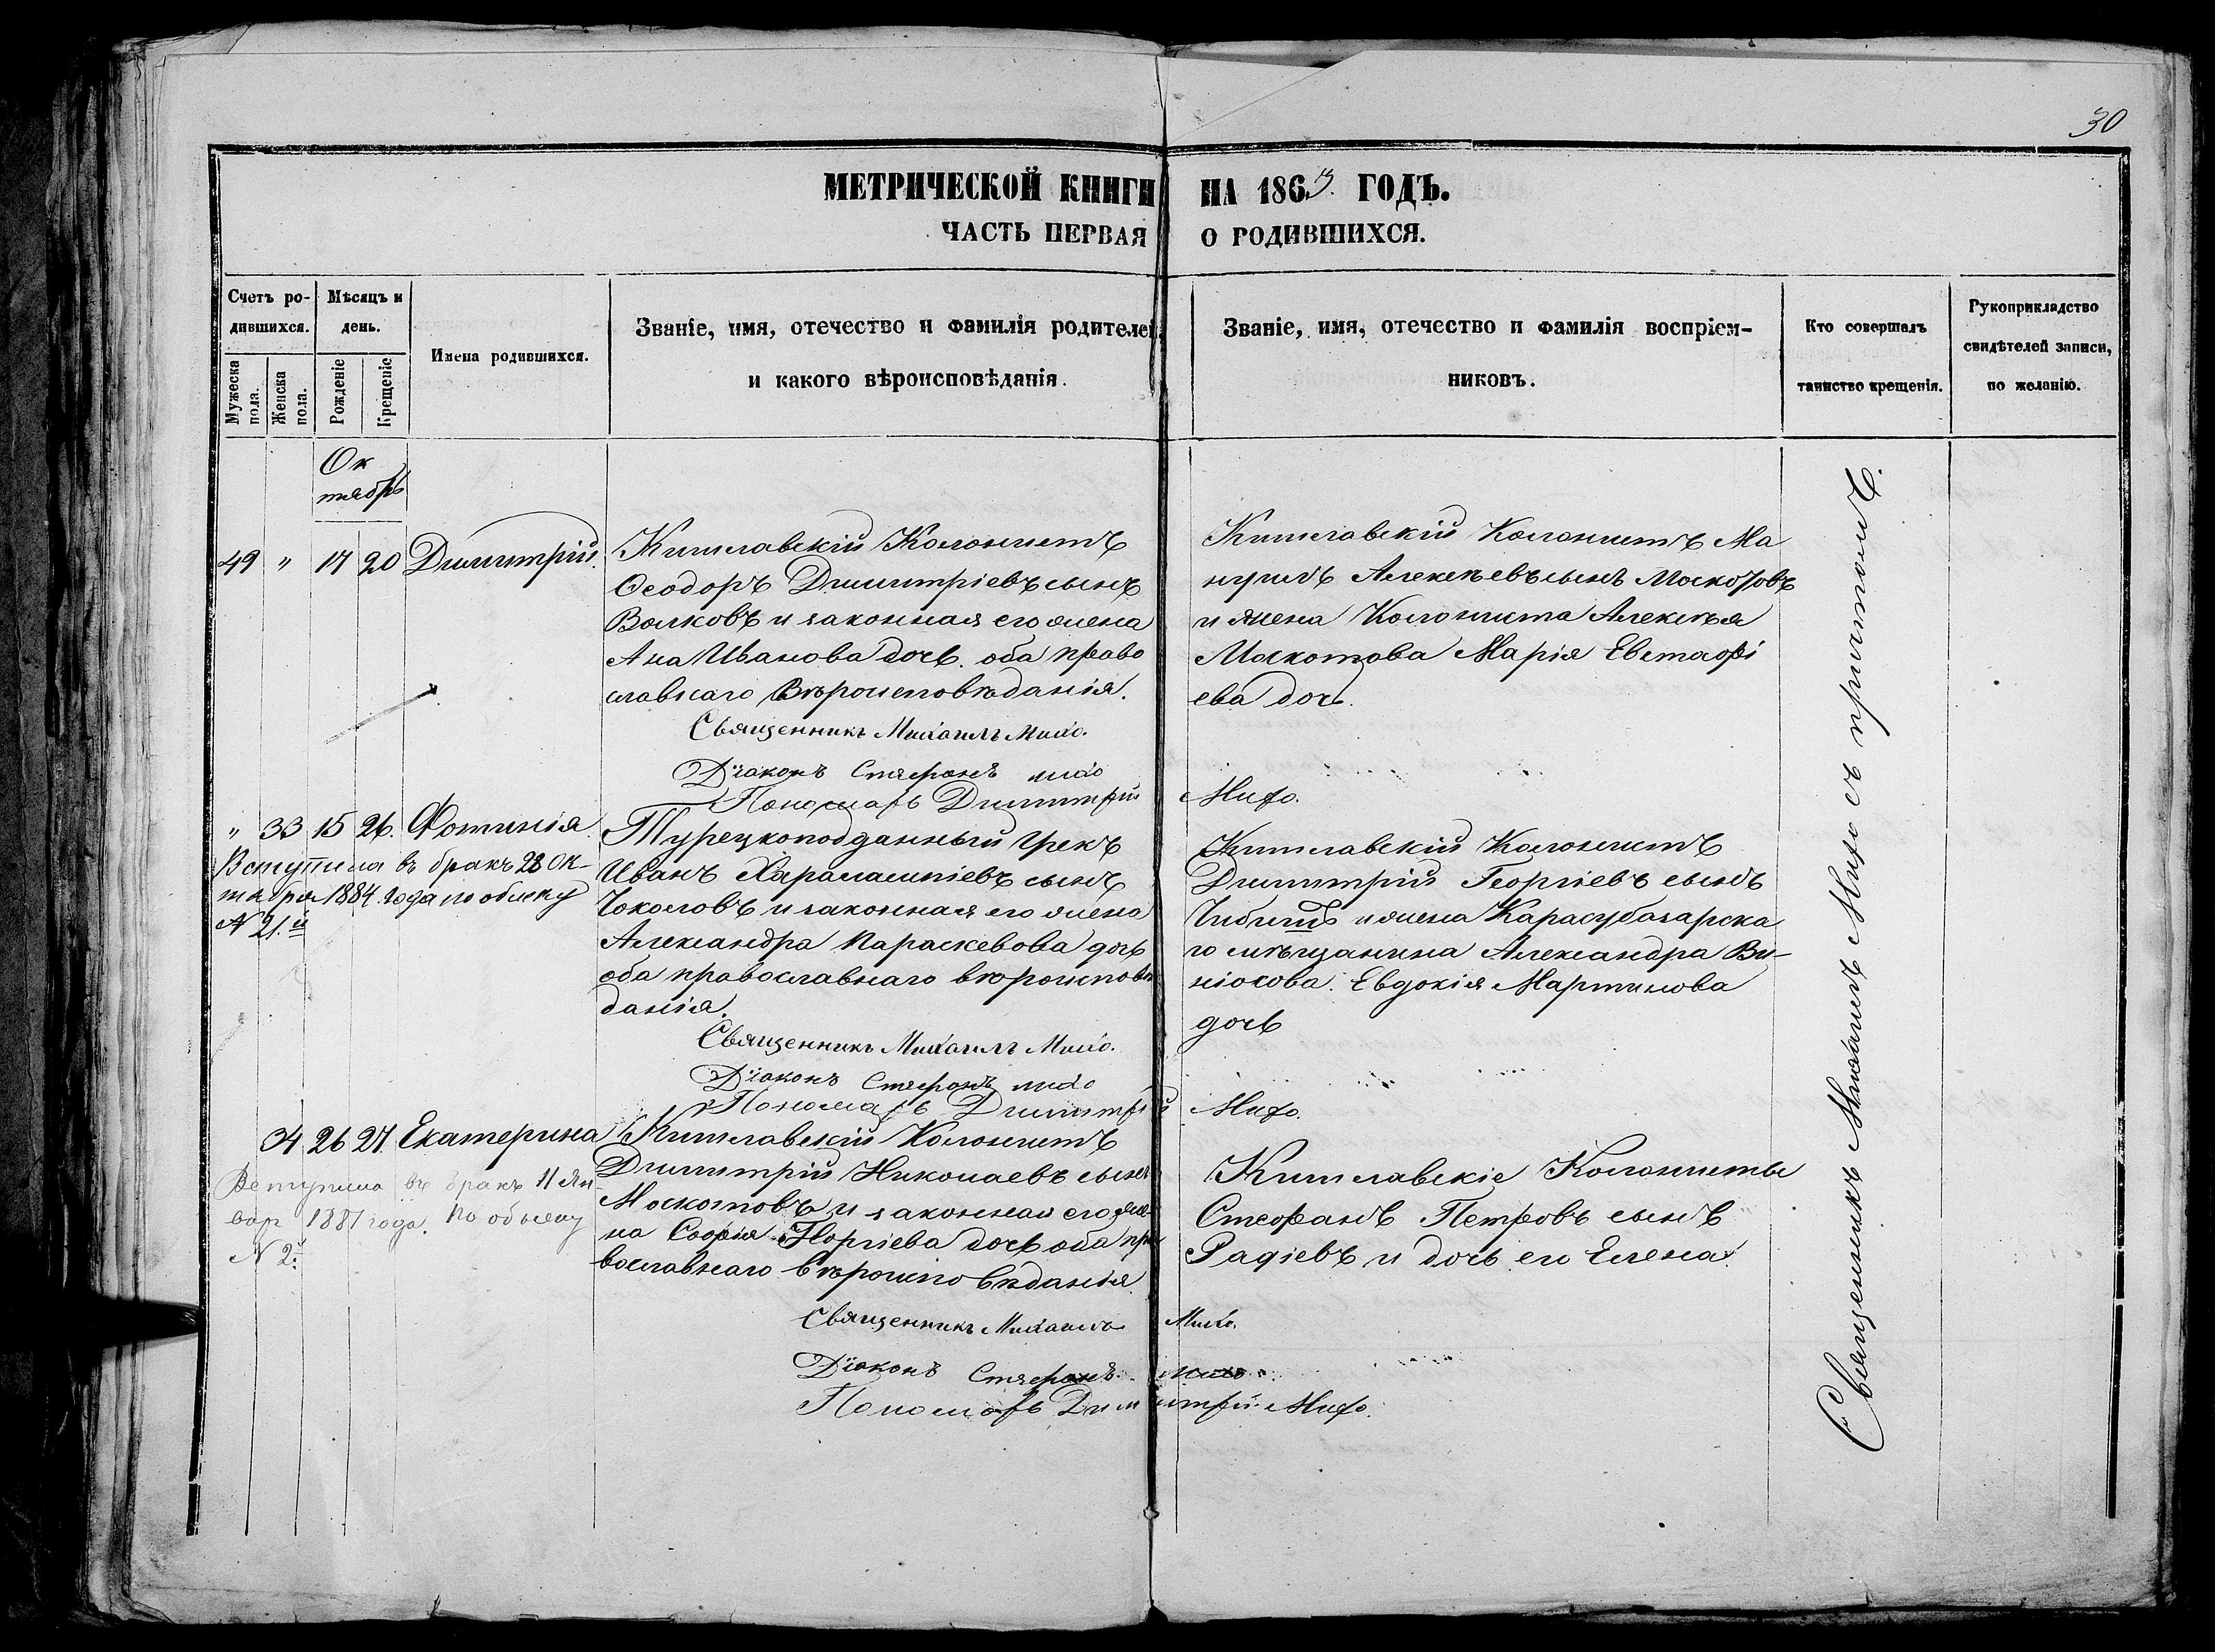 30
МЕТРИЧЕСКОЙ КНИГИ НА 1863. ГОДЪ.
ЧАСТЬ ПЕРВАЯ О РОДИВШИХСЯ.
Счетъ ро-
дившихся.
Мужеска пола.
Женска пола.
Мѣсяцъ и
день.
Рожденіе
Крещеніе
Имена родившихся.
Званіе, имя, отечество и фамилія родителей,
и какого вѣроисповѣданія.
Званіе, имя, отечество и фамилія воспріем-
никовъ.
Кто совершалъ
таинство крещенія.
Рукоприкладство
свидѣтелей записи,
по желанію.
Ок
тябрь
49 " 17 20 Димитрій.
Кишлавскій Колонистъ
Ѳеодоръ Димитріевъ сынъ
Волковъ и законная его жена
Ана Иванова дочь. оба право
славнаго Вѣроисповѣданія.
Священникъ Михаилъ Михо.
Діаконъ Стефанъ михо
Пономарь Димитрій Михо.
Кишлавскій Колонистъ Ма
нуилъ Алексѣевъ сынъ Москотовъ
и жена Колониста Алексѣя
Москотова Марія Евстафі
ева дочь.
" 33 15 26. Фотинія
Вступила въ бракъ 28 Ок-
тября 1884 года по обыску
N 21.й
Турецкоподданный Грекъ
Иванъ Харалампіевъ сынъ
Чоколовъ и законная его жена
Александра Параскевова дочь
оба православнаго вѣроисповѣ
данія.
Священникъ Михаилъ Михо.
Діаконъ Стефанъ михо
Пономарь Димитрій Михо.
Кишлавскій Колонистъ
Димитрій Георгіевъ сынъ
и жена Карасубазарска
го мѣщанина Александра
Евдокія Мартинова
дочь
34 26 27. Екатерина
Вступила въ бракъ 11 Ян
вар 1881 года. По обыску
N 2й
Кишлавскій Колонистъ
Димитрій Николаевъ сынъ
Москотовъ и законная его же
на Софія Георгіева дочь оба пра
вославнаго Вѣроисповѣданія.
Священникъ Михаилъ Михо.
Діаконъ Стефанъ михо
Пономарь Димитрій Михо.
Кишлавскіе Колонисты
Стефанъ Петровъ сынъ
Радіевъ и дочь его Елена.
Священникъ Михаилъ Михо съ причтомъ.